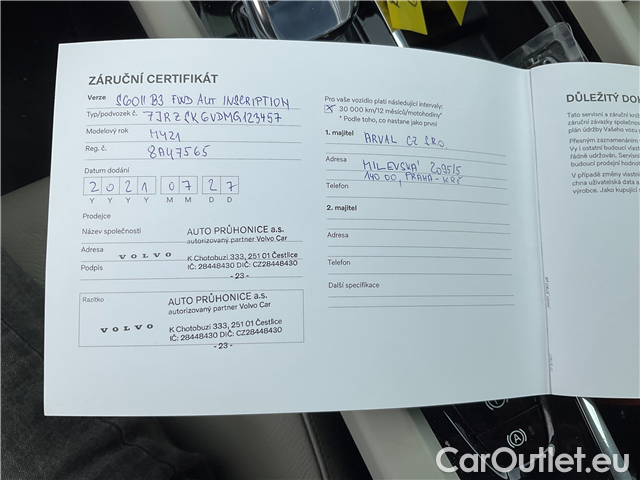 ZÁRUČNÍ CERTIFIKÁT
Verze S60II B3 FWD AUT INSCRIPTION
Typ/podvozek č. 7JRZSK6VDMG123457
Modelový rok MY21
Reg. č. 8AY7565
Datum dodání
2 0 2 1 0 7 2 7
Y Y Y Y M M D D
Prodejce
Název společnosti AUTO PRŮHONICE a.s.
autorizovaný partner Volvo Car
Adresa VOLVO K Chotobuzi 333, 251 01 Čestlice
Podpis IČ: 28448430 DIČ: CZ28448430
- 23 -
Razítko AUTO PRŮHONICE a.s.
autorizovaný partner Volvo Car
VOLVO K Chotobuzi 333, 251 01 Čestlice
IČ: 28448430 DIČ: CZ28448430
- 23 -
Pro vaše vozidlo platí následující intervaly:
X 30 000 km/12 měsíců/motohodiny*
* Podle toho, co nastane jako první
1. majitel ARVAL CZ SRO
Adresa MILEVSKÁ 2095/5
140 00, PRAHA - KRČ
Telefon
2. majitel
Adresa
Telefon
Další specifikace
DŮLEŽITÝ DOK
Tato servisní a záruční kniž
záruční závazky společnos
plán údržby Vašeho vozu.
Přesným zaznamenáním
Vy i ostatní budoucí vlast
řádně udržován. Servisní
budoucí prodejní hodnot
V případě změny vlastni
chna uživatelská data a
výrobce. Jako kupující s
CarOutlet.eu